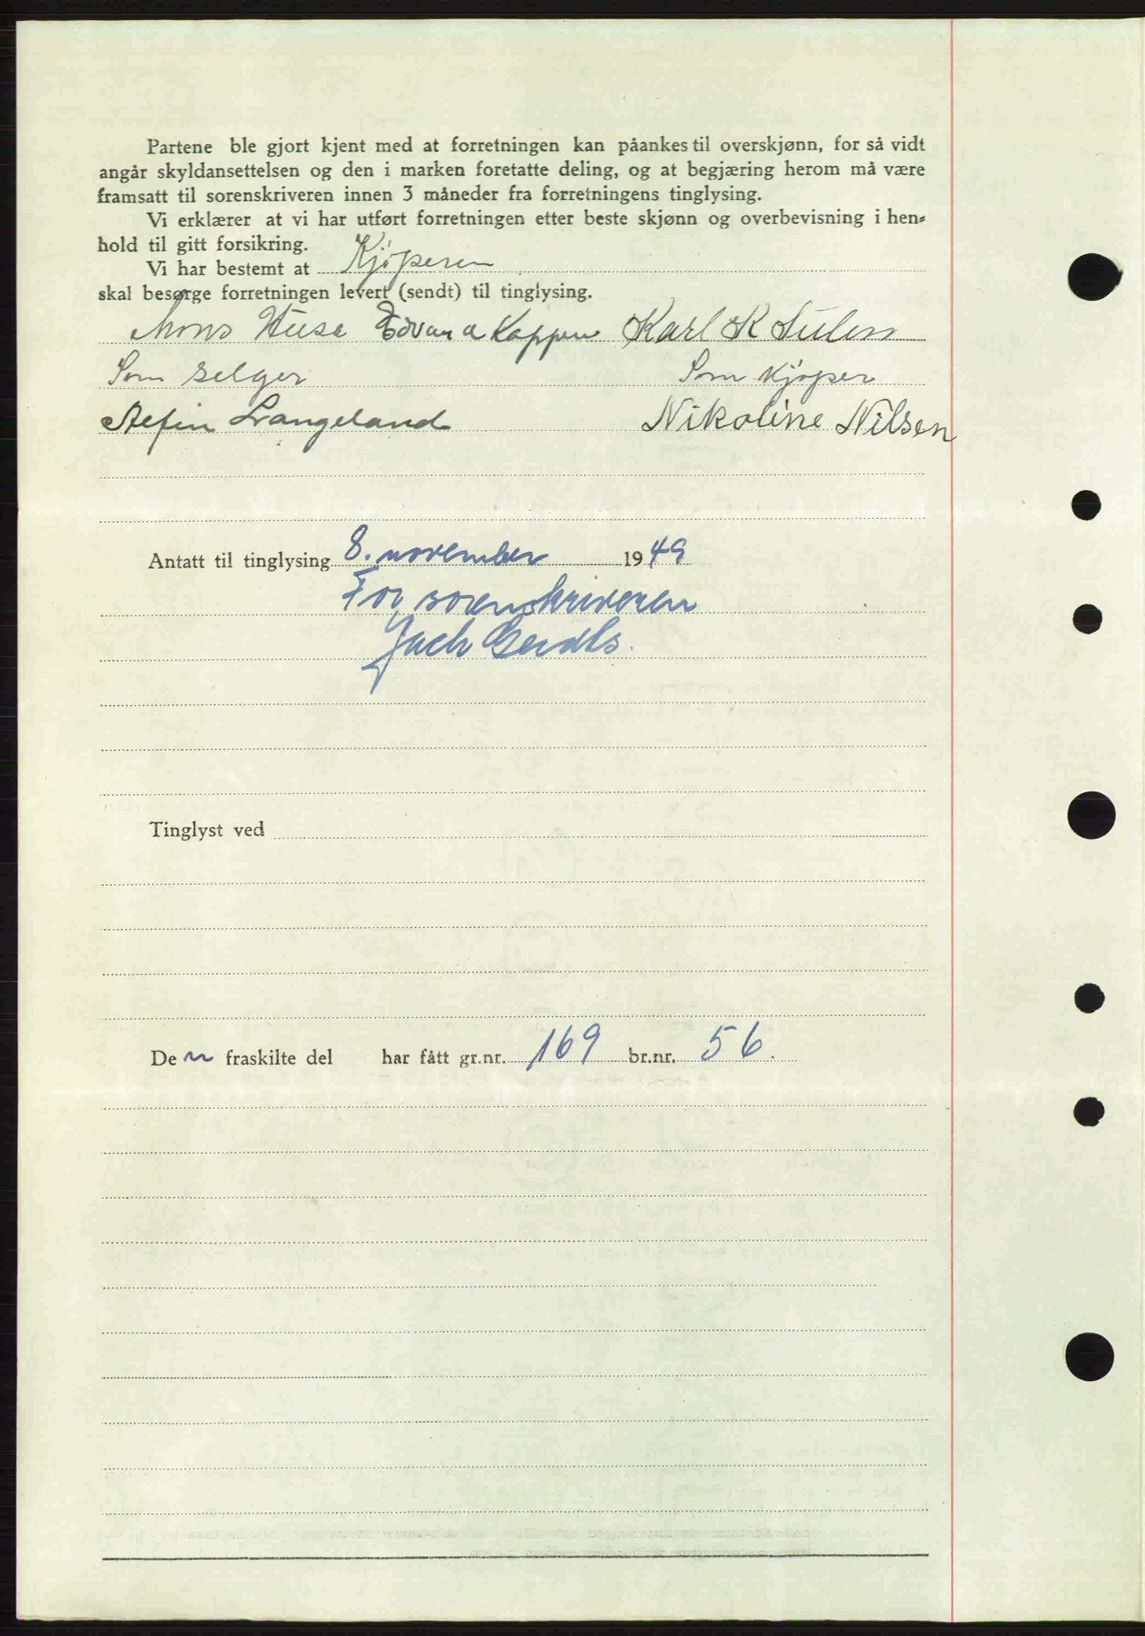 Partene ble gjort kjent med at forretningen kan påankes til overskjønn, for så vidt
angår skyldansettelsen og den i marken foretatte deling, og at begjæring herom må være
framsatt til sorenskriveren innen 3 måneder fra forretningens tinglysing.
Vi erklærer at vi har utført forretningen etter beste skjønn og overbevisning i hen-
hold til gitt forsikring.
Vi har bestemt at Kjøperen
skal besørge forretningen levert (sendt) til tinglysing.
Mons Huse Edvard Koppen Karl K Sulen
Som selger Som kjøper
Langeland Nikoline Nilsen
Antatt til tinglysing 8. november 1949
For sorenskriveren
Tinglyst ved
De n fraskilte del har fått gr.nr. 169 br.nr. 56.